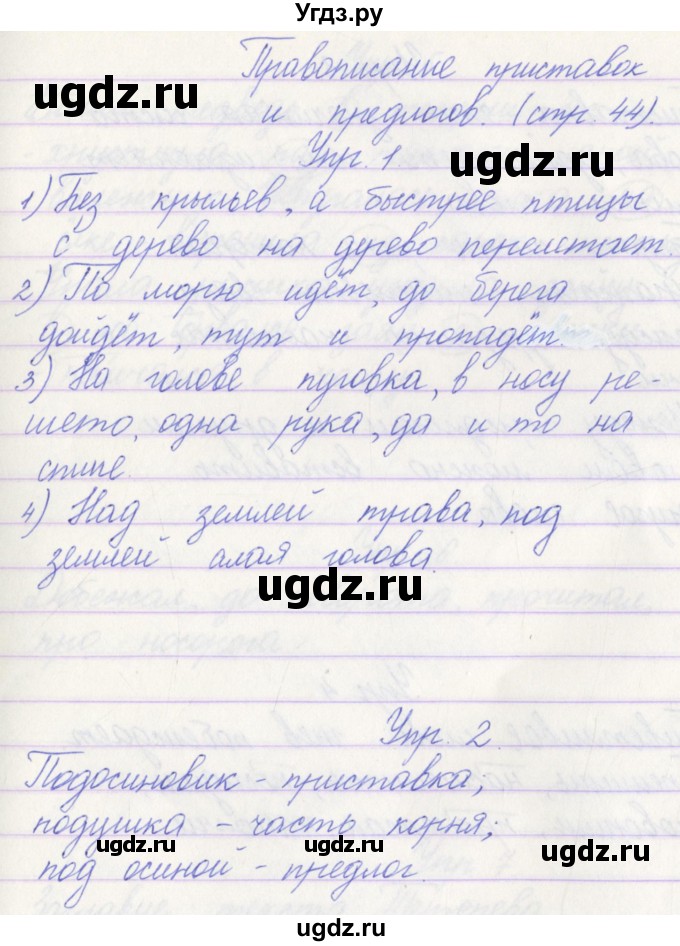 Угдз.ру
Правописание приставок
и предлогов. (стр. 44).
ugdz.ru
Упр. 1.
ugdz.ru
1) Без крыльев, а быстрее птицы
с дерево на дерево перелетает.
2) По морю идёт, до берега
дойдёт, тут и пропадёт.
3) На голове пуговка, в носу ре-
шето, одна рука, да и то на
спине.
4) Над землей трава, под
землей алая голова.
ugdz.ru
Упр. 2.
Подосиновик - приставка;
подушка - часть корня;
ugdz.ru
ugdz.ru
под осиной - предлог.
ugdz.ru
ugdz.ru